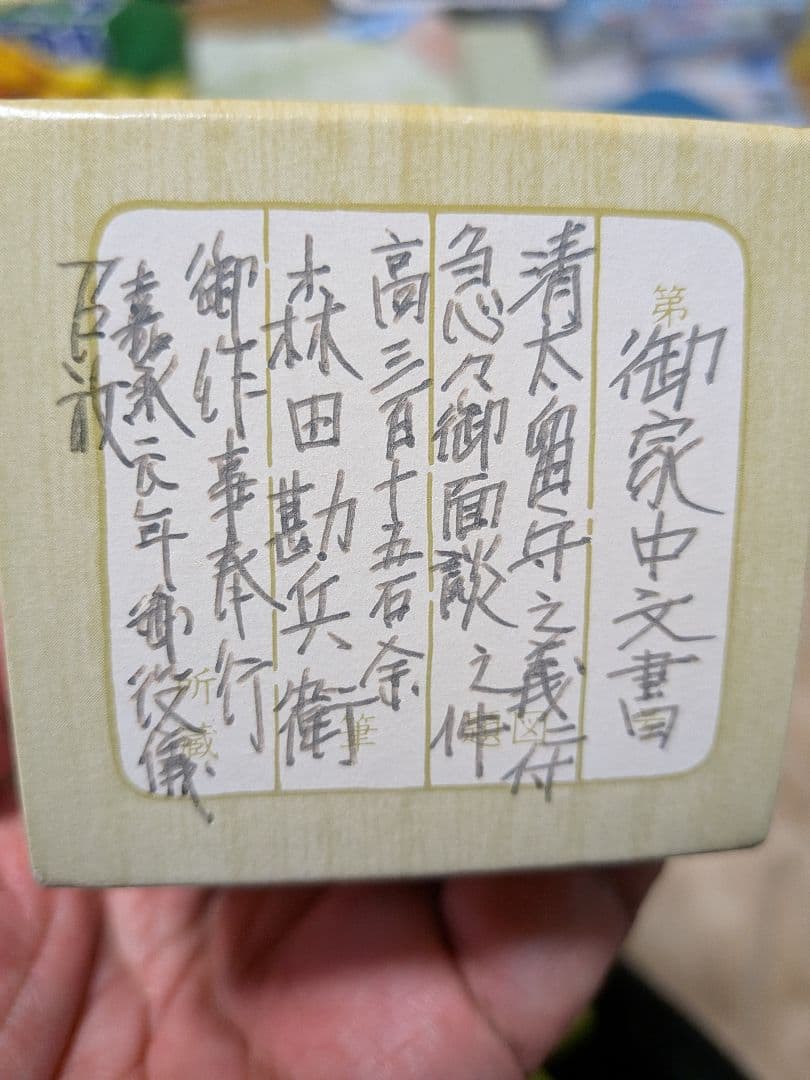 第
御家中文書
清太留守之義ニ付
急々御面談之件
高三百十五石余
森田勘兵衛
筆
御作事奉行
所蔵
嘉永元年御役儀